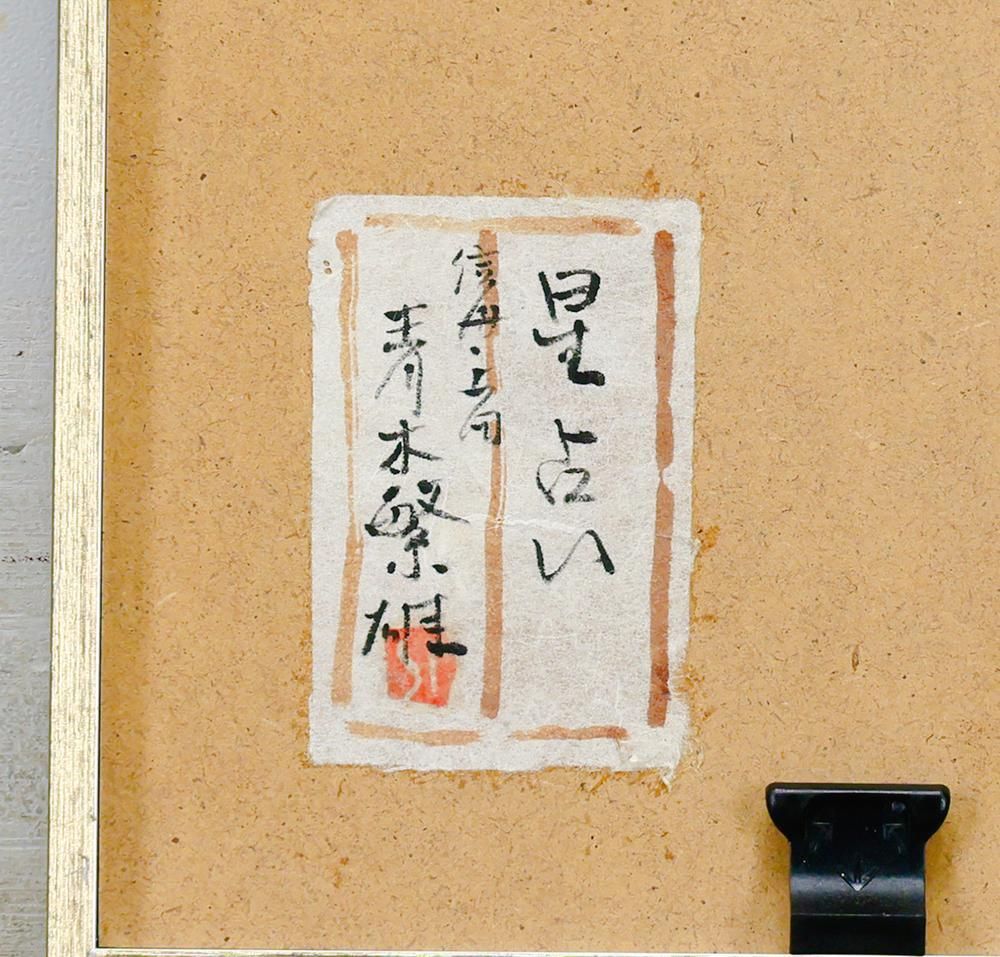 星占い
信州・上田
青木繁雄